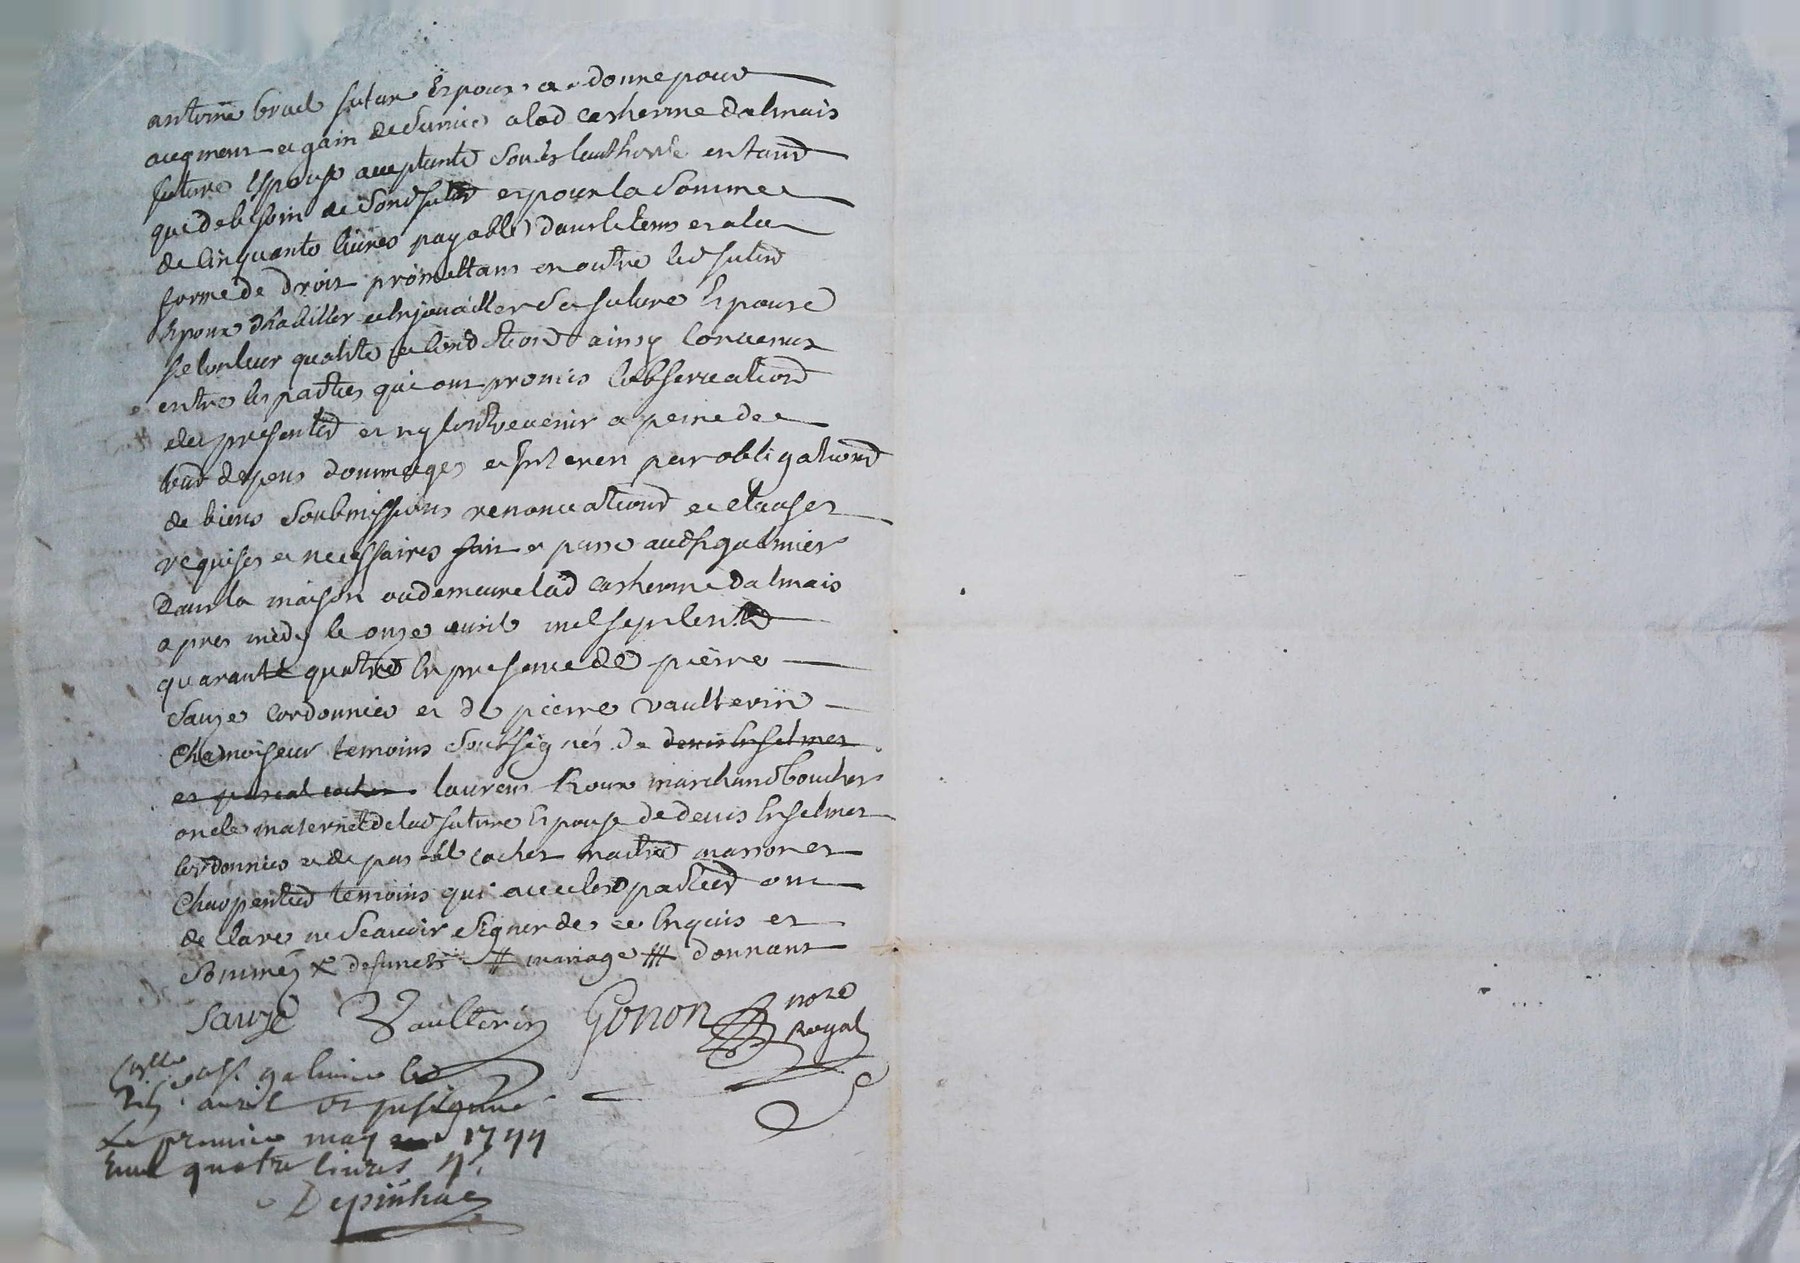 antoine brad futur Epoux a donne pour
augment et gain de survie a lad catherine dalmais
future Espouse acceptante sous lauthorite en tand
que de besoin de sond futur et pour la somme
de cinquante livres payable dans le tems et a la
forme de droit promettant en outre led futur
Epoux dhabiller et enjouailler sa future Epouse
selon leur qualité et condition ainsy convenus
entre les parties qui ont promis lobservation
des presentes et ny contrevenir a peine de
tous depens dommages et interets par obligations
de biens soubmissions renonciations et clauses
requises et necessaires fait et passé audt st galmier
dans la maison ou demeure lad catherine dalmais
apres midy le onze avril mil sept cent
quarante quatre en presence de pierre
Sauze cordonnier et de pierre vaulterin
chamoiseur temoins soubsignés de denis Enselmet
et pascal cochet laurens Roux marchand boucher
oncle maternel de lad future Epouse de denis Enselmet
cordonnier et de pascal cochet maitre masson et
charpentier temoins qui avec les parties ont
declaré ne scavoir signer de ce Enquis et
sommés X defuncts # mariage ## donnant
Sauze Vaulterin Gonon no.re
Royal
Con.lle a st galmier le
avril et insinué
Le premier may 1744
Recu quatre livres 4 s
Depinhac